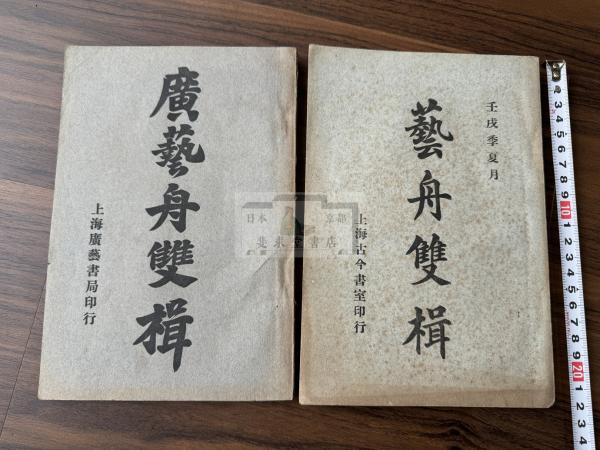 廣藝舟雙楫
上海廣藝書局印行
壬戌季夏月
藝舟雙楫
上海古今書室印行
日本 京都
集求堂書店
1 2 3 4 5 6 7 8 9 10 1 2 3 4 5 6 7 8 9 20 1 2 3 4